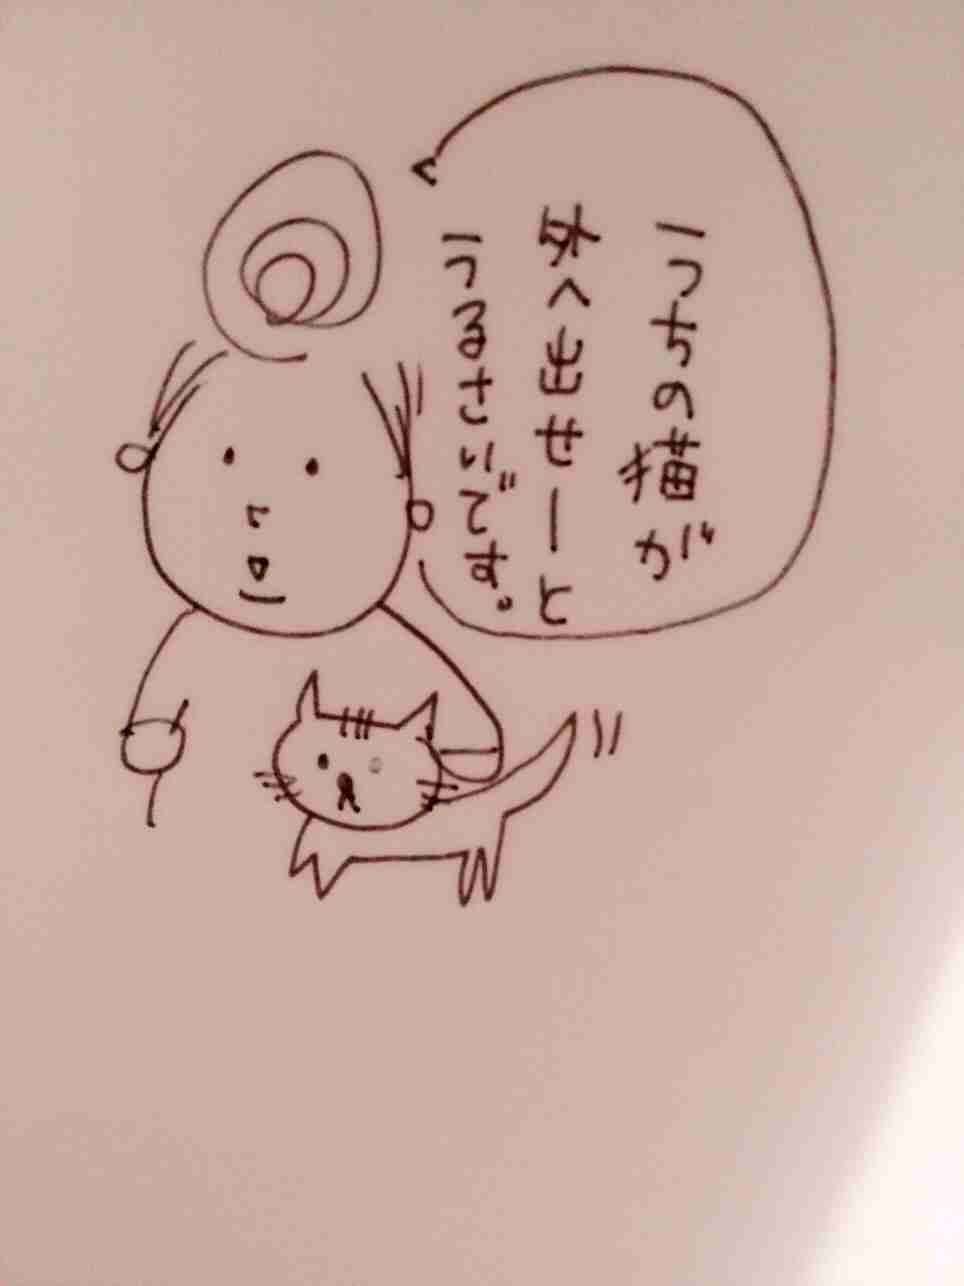 うちの猫が
外へ出せーと
うるさいです。